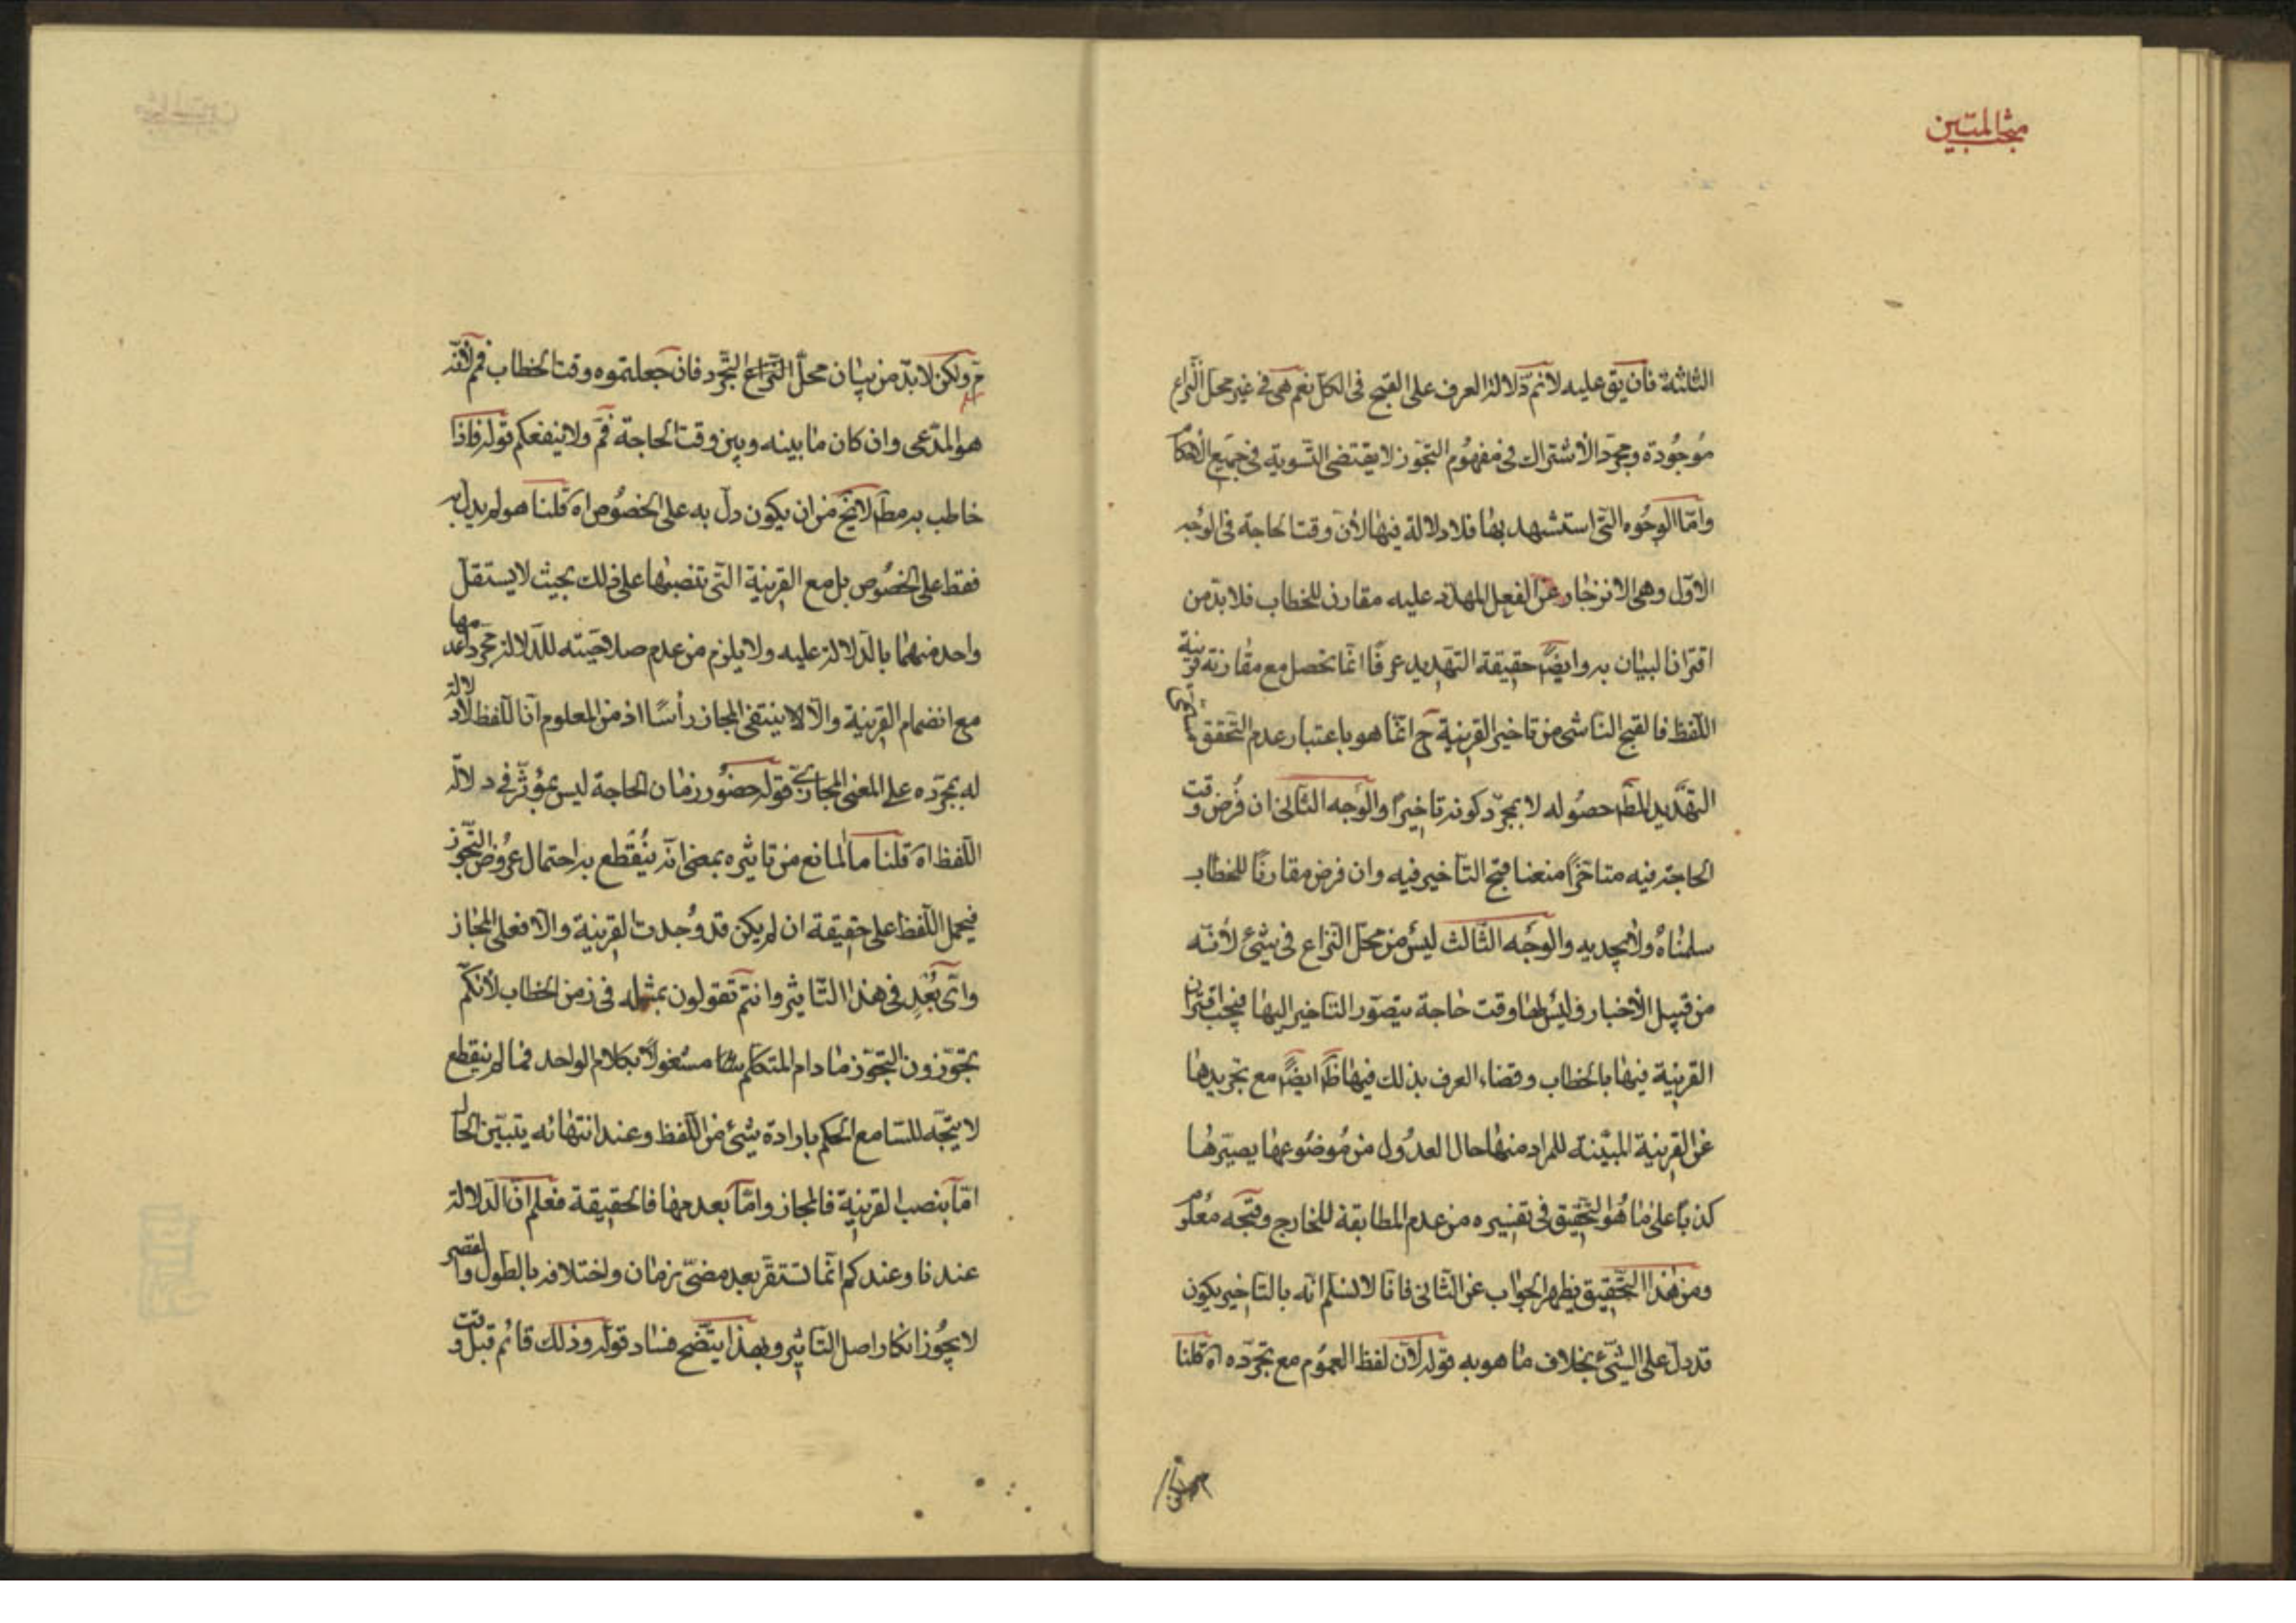 الثلثة فان يق عليه لانم دلالة العرف على القبح فى الكل نعم هى فى غير محل النزاع
موجودة ومجرد الاشتراك فى مفهوم التجوز لا يقتضى التسوية فى جميع الاحكام
واما الوجوه التى استشهد بها فلا دلالة فيها لان وقت الحاجة فى الوجه
الاول وهى الانزجار عن الفعل المهدد عليه مقارن للخطاب فلا بد من
اقتران البيان به وايضا حقيقة التهديد عرفا انما تحصل مع مقارنة قرينة
اللفظ فالقبح الناشى من تاخير القرينة ح انما هو باعتبار عدم التحقق
التهديد المط حصوله لا بمجرد كونه تاخيرا والوجه الثانى ان فرض وقت
الحاجة فيه متاخرا منعنا قبح التاخير فيه وان فرض مقارنا للخطاب
سلمناه ولا يجديه والوجه الثالث ليس من محل النزاع فى شئ لانه
من قبيل الاخبار وليس لها وقت حاجة يتصور التاخير اليها فيجب اقتران
القرينة فيها بالخطاب وقضاء العرف بذلك فيها ظ ايضا مع تجريدها
عن القرينة المبينة للمراد منها حال العدول من موضوعها يصيرها
كذبا على ما هو التحقيق فى تفسيره من عدم المطابقة للخارج وقبحه معلوم
ومن هذا التحقيق يظهر الجواب عن الثانى فانا لا نسلم انه بالتاخير يكون
قد دل على الشئ بخلاف ما هو به قوله لان لفظ العموم مع تجرده اه قلنا
م ولكن لا بد من بيان محل التجرد فان جعلتموه وقت الخطاب فم لانه
هو المدعى وان كان ما بينه وبين وقت الحاجة فم ولا ينفعكم قوله فاذا
خاطب به مط لا يخ من ان يكون دل به على الخصوص اه قلنا هو لم يدل به
فقط على الخصوص بل مع القرينة التى تنصبها على ذلك بحيث لا يستقل
واحد منهما بالدلالة عليه ولا يلزم من عدم صلاحيته للدلالة مجردا عدمها
مع انضمام القرينة والا لا ينتفى المجاز رأسا اذ من المعلوم ان اللفظ لا دلالة
له بمجرده على المعنى المجازى قوله حضور زمان الحاجة ليس بمؤثر فى دلالة
اللفظ اه قلنا ما المانع من تاثيره بمعنى انه ينقطع به احتمال عروض التجوز
فيحمل اللفظ على حقيقة ان لم يكن قد وجدت القرينة والا فعلى المجاز
واى بعد فى هذا التاثير وانتم تقولون بمثله فى زمن الخطاب لانكم
تجوزون التجوز ما دام المتكلم مشغولا بكلام الواحد فما لم ينقطع
لا يتجه للسامع الحكم بارادة شئ من اللفظ وعند انتهائه يتبين الحال
اما بنصب القرينة فالمجاز واما بعدمها فالحقيقة فعلم ان الدلالة
عندنا وعندكم انما تستقر بعد مضى زمان واختلافه بالطول والقصر
لا يجوز انكار اصل التاثير وبهذا يتضح فساد قوله وذلك قائم قبل وقت